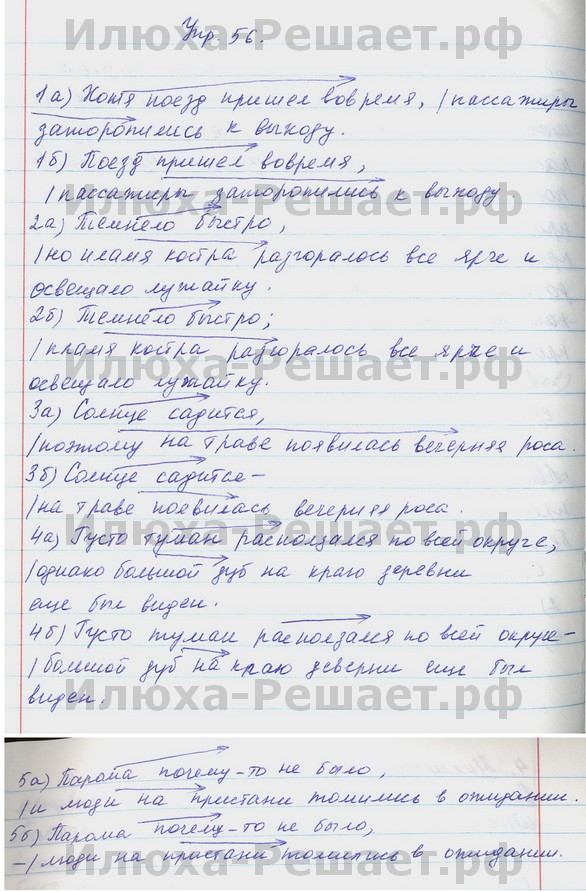 Упр. 56.
1а) Хотя поезд пришел вовремя, /пассажиры
заторопились к выходу.
1б) Поезд пришел вовремя,
/пассажиры заторопились к выходу
2а) Темнело быстро,
/но пламя костра разгоралось все ярче и
освещало лужайку.
2б) Темнело быстро;
/пламя костра разгоралось все ярче и
освещало лужайку.
3а) Солнце садится,
/поэтому на траве появилась вечерняя роса.
3б) Солнце садится–
/на траве появилась вечерняя роса.
4а) Густо туман расползался по всей округе,
/однако большой дуб на краю деревни
еще был виден.
4б) Густо туман расползался по всей округе–
/большой дуб на краю деверни еще был
виден.
5а) Парома почему-то не было,
/и люди на пристани томились в ожидании.
5б) Парома почему-то не было,
–/люди на пристани томились в ожидании.
Илюха-Решает.рф
Илюха-Решает.рф
Илюха-Решает.рф
Илюха-Решает.рф
Илюха-Решает.рф
Илюха-Решает.рф
Илюха-Решает.рф